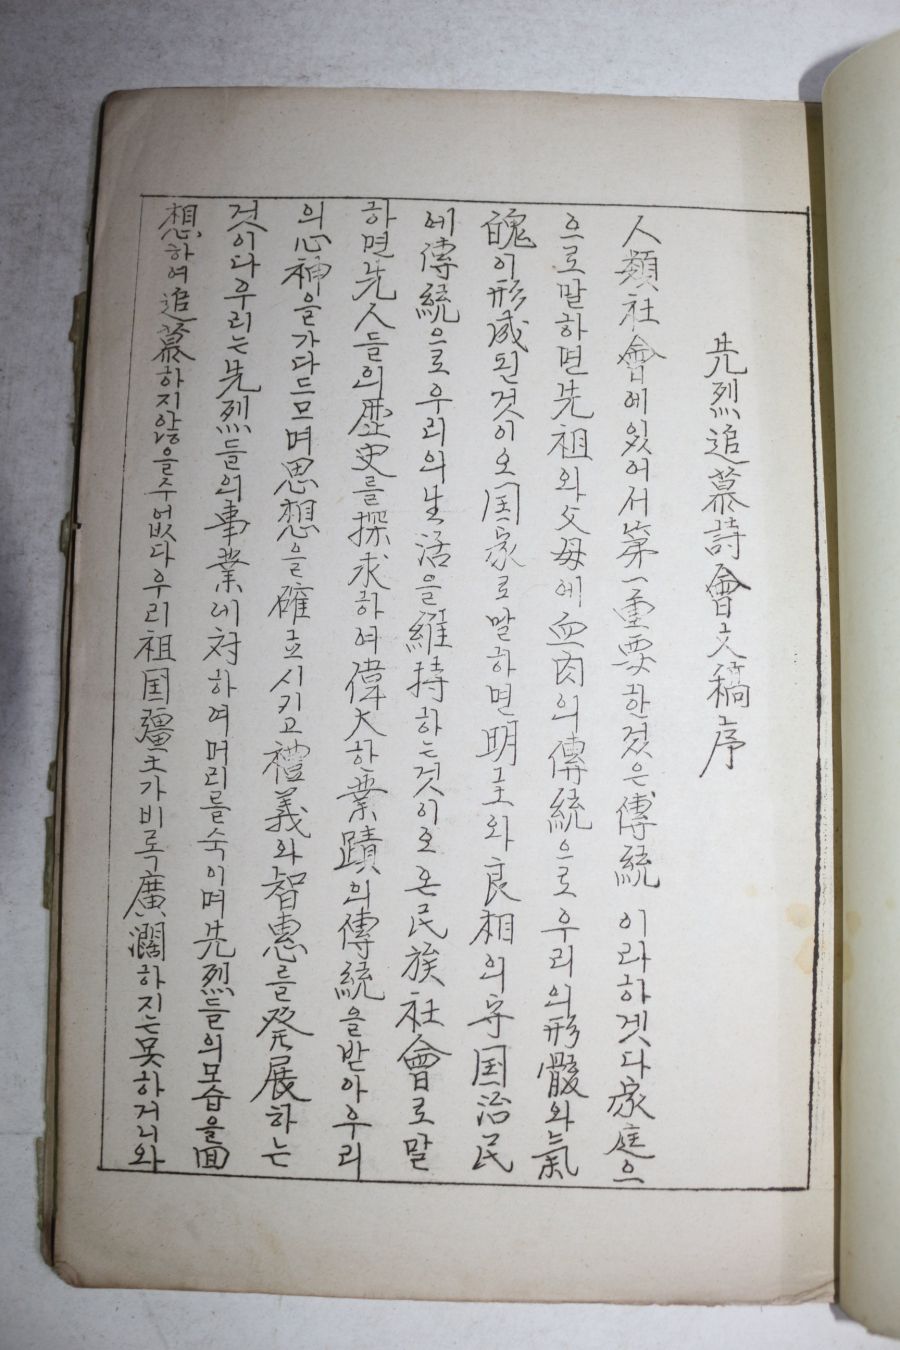 先烈追慕詩會文稿序
人類社會에있어서第一重要한것은傳統 이라하겟다家庭으
으로말하면先祖와父母에血肉의傳統으로우리의形骸와氣
魄이形成된것이오国家로말하면明主와良相의守国治民
에傳統으로우리의生活을維持하는것이오온民族社會로말
하면先人들의歷史를探求하여偉大한業蹟의傳統을받아우리
의心神을가다드므며思想을確立시키고禮義와智惠를発展하는
것이다우리는先烈들의事業에対하여머리를숙이며先烈들의모습을面
想하여追慕하지않을수없다우리祖国疆土가비록廣濶하지는못하거니와